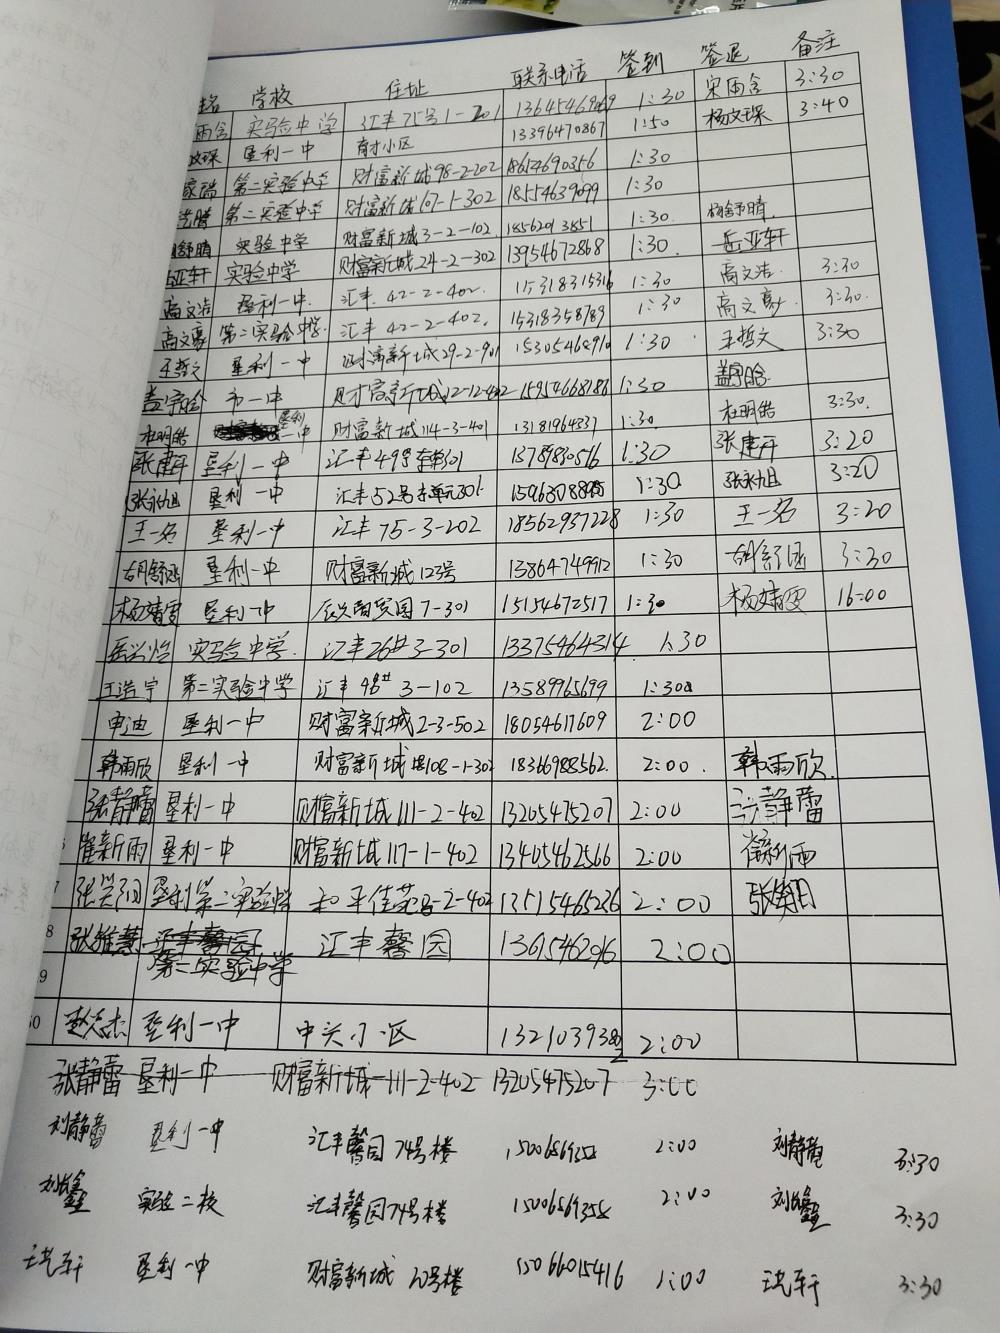 名 学校 住址 联系电话 签到 签退 备注
雨含 实验中学 汇丰71号1-201 1:30 宋雨含 3:30
玫琛 垦利一中 育才小区 13396470867 1:50 杨玫琛 3:40
家瑞 第二实验中学 财富新城98-2-202 18614690356 1:30
第二实验中学 财富新城107-1-302 18554639099 1:30
舒晴 实验中学 财富新城3-2-102 18562013851 1:30 杨舒晴
岳亚轩 实验中学 财富新城24-2-302 13954672868 1:30 岳亚轩
高文浩 垦利一中 汇丰 42-2-402 15318315316 1:30 高文浩 3:30
高文 第二实验中学 汇丰 42-2-402 15318358789 1:30 高文 3:30
王哲文 垦利一中 财富新城29-2-901 15305468910 1:30 王哲文 3:30
盖宇晗 市一中 财富新城12-12-402 15954668186 1:30 盖宇晗
杜明皓 垦利一中 财富新城114-3-401 13181964837 1:30 杜明皓 3:30
张建丹 垦利一中 汇丰49号301 13789830516 1:30 张建丹 3:20
张永旭 垦利一中 汇丰52号单元301 1:30 张永旭 3:20
王一名 垦利一中 汇丰 75-3-202 18562937228 1:30 王一名 3:20
胡舒涵 垦利一中 财富新城123号 13864749912 1:30 胡舒涵 3:30
杨婧雯 垦利一中 7-301 15154672517 1:30 杨婧雯 16:00
岳兴怡 实验中学 汇丰26# 3-301 13375464314 1:30
王浩宇 第二实验中学 汇丰48# 3-102 13589965699 1:30
申迪 垦利一中 财富新城2-3-502 18054617609 2:00
韩雨欣 垦利一中 财富新城108-1-302 18366988562 2:00 韩雨欣
张静蕾 垦利一中 财富新城111-2-402 13205475207 2:00 张静蕾
崔新雨 垦利一中 财富新城117-1-402 13405462566 2:00 崔新雨
7 张 垦利第二实验 和平佳苑 2-402 13515465236 2:00 张
8 张雅慧 汇丰馨园 第二实验中学 汇丰馨园 2:00
9
30 赵志杰 垦利一中 中兴小区 2:00
张静蕾 垦利一中 财富新城 111-2-402 13205475207 3:00
刘静 垦利一中 汇丰馨园74号楼 2:00 刘静 3:30
刘鑫 实验二校 汇丰馨园74号楼 15006569355 2:00 刘鑫 3:30
王艺轩 垦利一中 财富新城 20号楼 15066015416 1:00 王艺轩 3:30